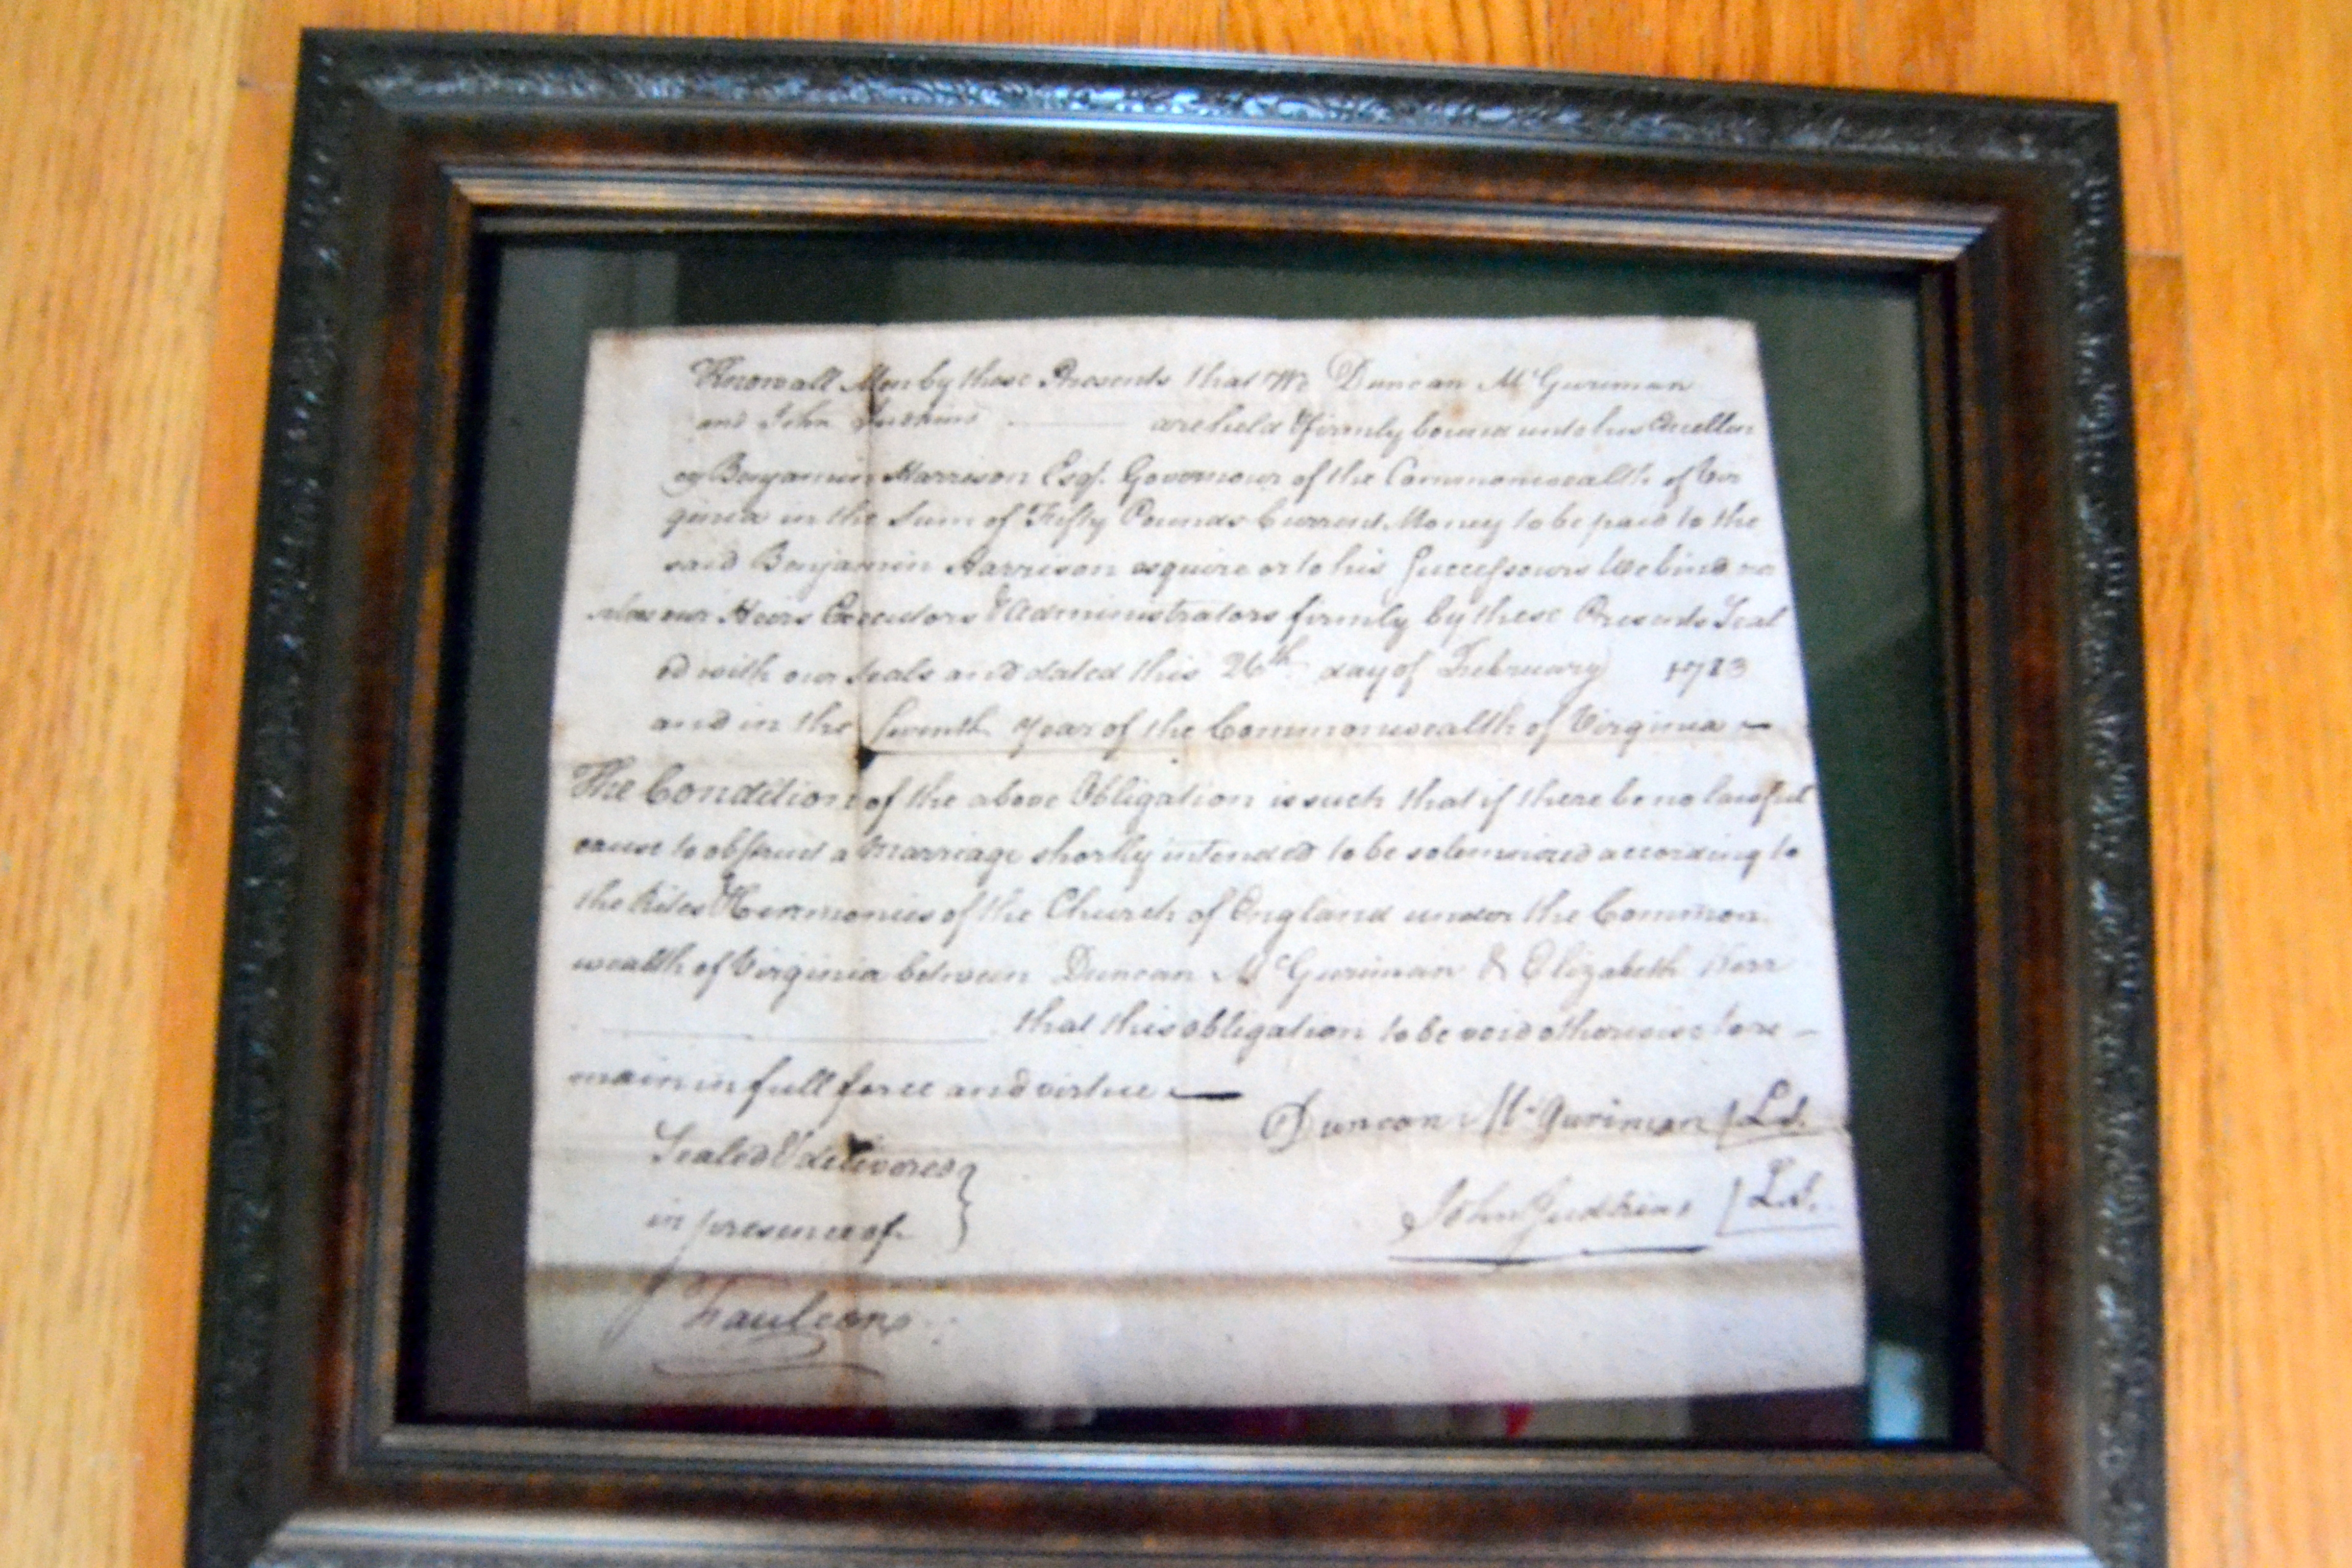 Know all Men by these Presents that We Duncan McGuriman
and John Judkins are held & firmly bound unto his Excellen
cy Benjamin Harrison Esqr. Governour of the Commonwealth of Vir
ginia in the Sum of Fifty Pounds Current Money to be paid to the
said Benjamin Harrison esquire or to his Successours We bind our
selves our Heirs Executors & Administrators firmly by these Presents Seal
ed with our seals and dated this 26th day of February 1783
and in the seventh Year of the Commonwealth of Virginia —
The Condition of the above Obligation is such that if there be no lawful
cause to obstruct a Marriage shortly intended to be solemnized according to
the Rites & Ceremonies of the Church of England under the Common
wealth of Virginia between Duncan McGuriman & Elizabeth Kerr
that this obligation to be void otherwise to re —
main in full force and virtue —
Duncan McGuriman Ls.
Sealed & delivered
in presence of
John Judkins Ls.
J Faulcon